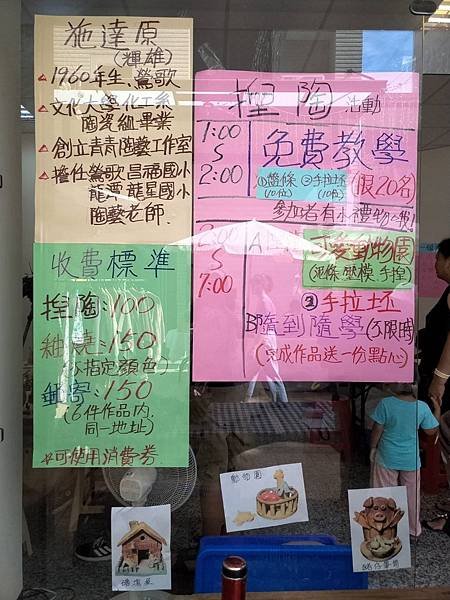 施達原
(輝雄)
1960年生、鶯歌
文化大學化工系
陶瓷組畢業
創立青青陶藝工作室
擔任鶯歌昌福國小
龍潭龍星國小
陶藝老師.
收費標準
捏陶:100
釉燒:150
(不指定顏色)
郵寄:150
(6件作品內,
同一地址)
※可使用消費券
捏陶活動
1:00
S
2:00
免費教學
①盤條 ②手拉坯 (限20名)
(10位) (10位)
參加者有小禮物哦!
2:00
S
7:00
A
可愛動物園
(泥條 壓模 手捏)
②手拉坯
B隨到隨學(不限時)
(完成作品送一份點心)
動物園